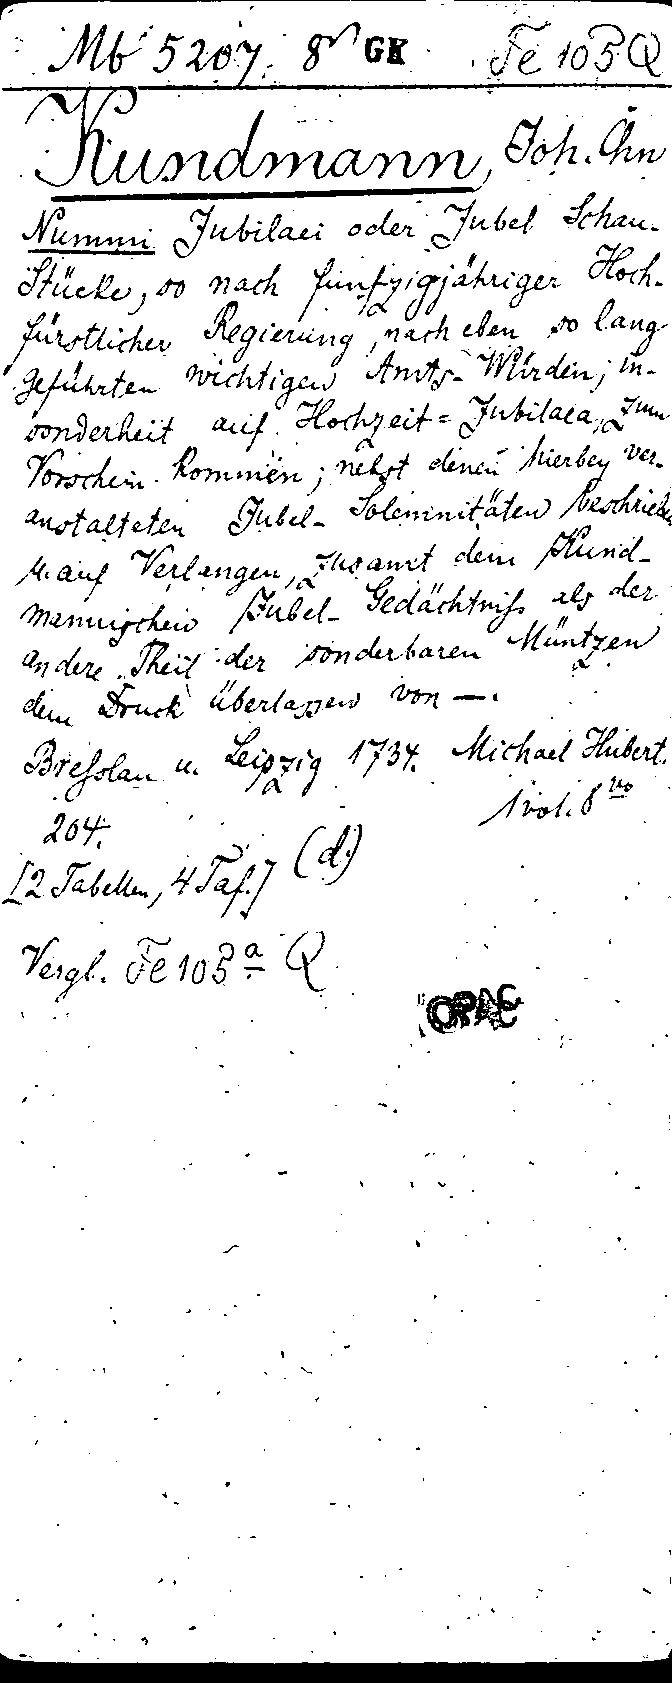 Mb 5207. 8° GK Fe 105 Q
Kundmann, Joh. Chn
Nummi Jubilaei oder Jubel Schau-
Stücke, so nach funfzigjähriger Hoch-
fürstlicher Regierung, nach eben so lang
geführten wichtigen Amts-Würden; in-
sonderheit auf Hochzeit=Jubilaea, zum
Vorschein kommen; nebst denen hierbey ver-
anstalteten Jubel-Solemnitäten beschrieben
u. auf Verlangen, zusamt dem Kund-
mannischen Jubel-Gedächtniss als der
andere Theil der sonderbaren Müntzen
dem Druck überlassen von —.
Bresslau u. Leipzig 1734. Michael Hubert.
1 vol. 8vo
204.
[2 Tabellen, 4 Taf.] (d.)
Vergl. Fe 105a Q
OPAC